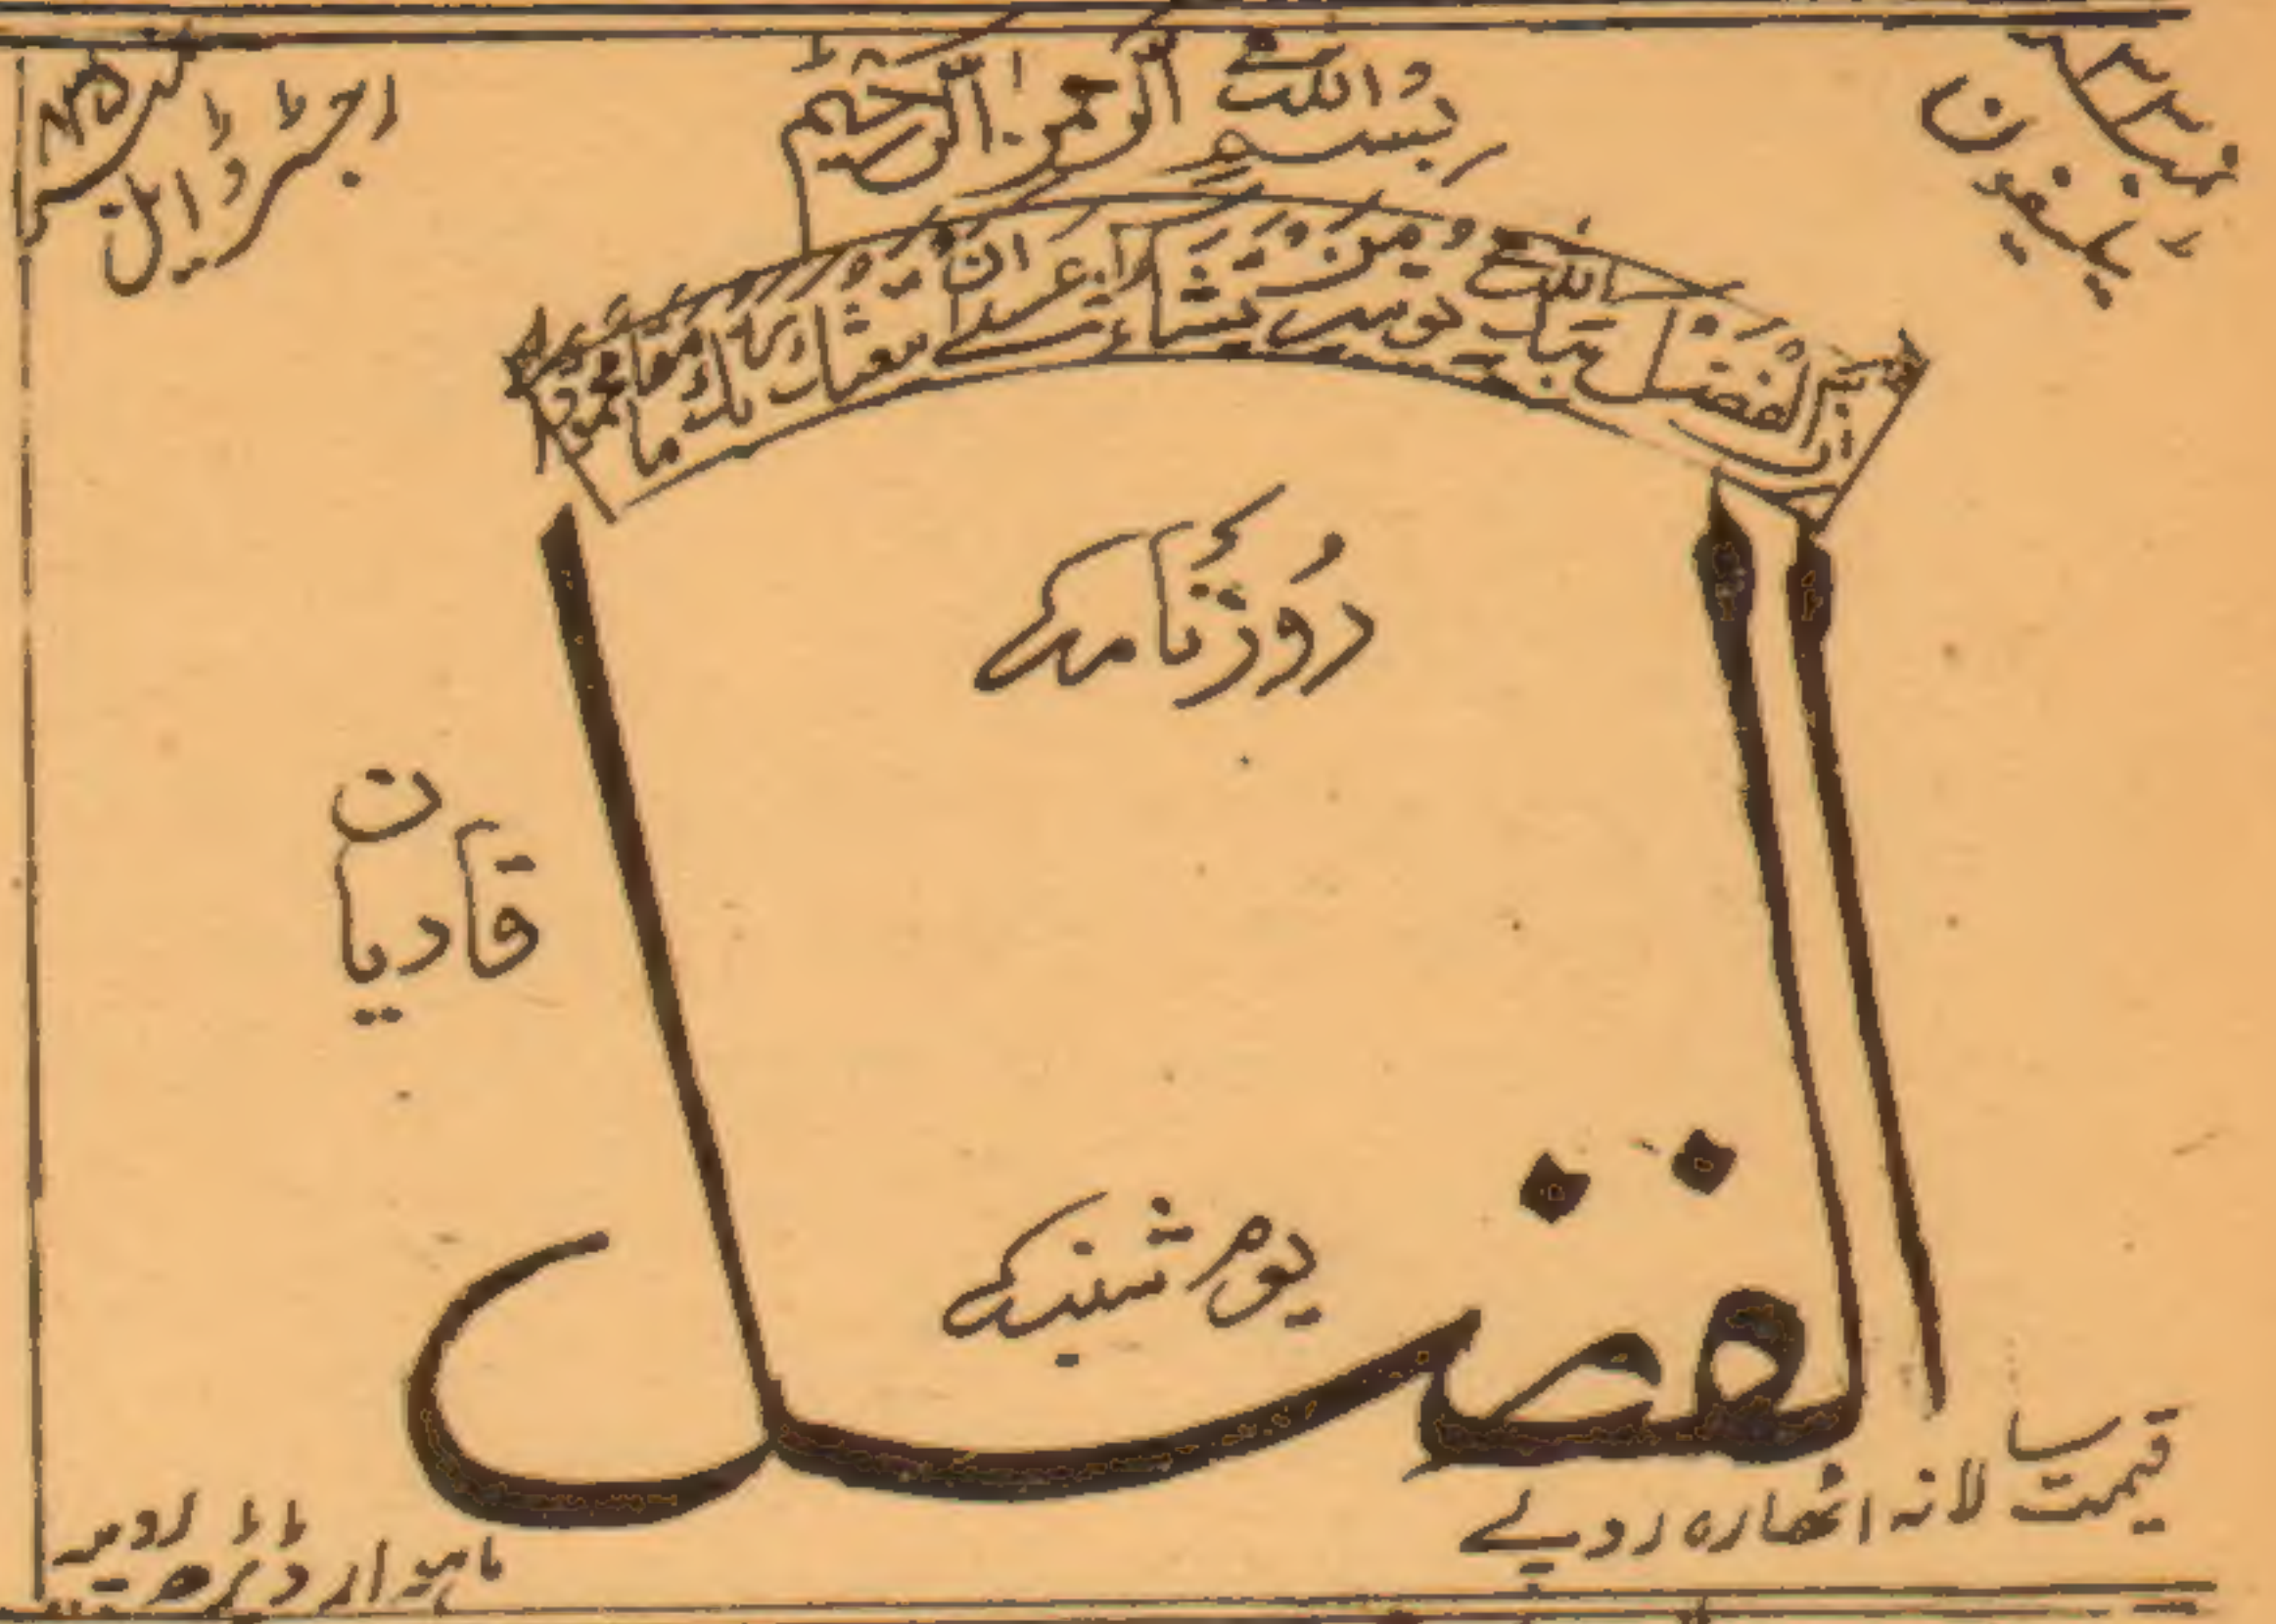 ٹیلیفون نمبر ۳۳
بِسْمِ اللّٰهِ الرَّحْمٰنِ الرَّحِيْمِ
رجسٹرڈ ایل نمبر ۸۳۵
اِنَّ الفَضْلَ بِيَدِ اللّٰهِ يُؤْتِيهِ مَنْ يَّشَاءُ عَسٰى اَنْ يَّبْعَثَكَ رَبُّكَ مَقَامًا مَّحْمُودًا
روزنامہ
الفضل
قادیان
یوم شنبہ
قیمت سالانہ اٹھارہ روپے
ماہوار ڈیڑھ روپیہ